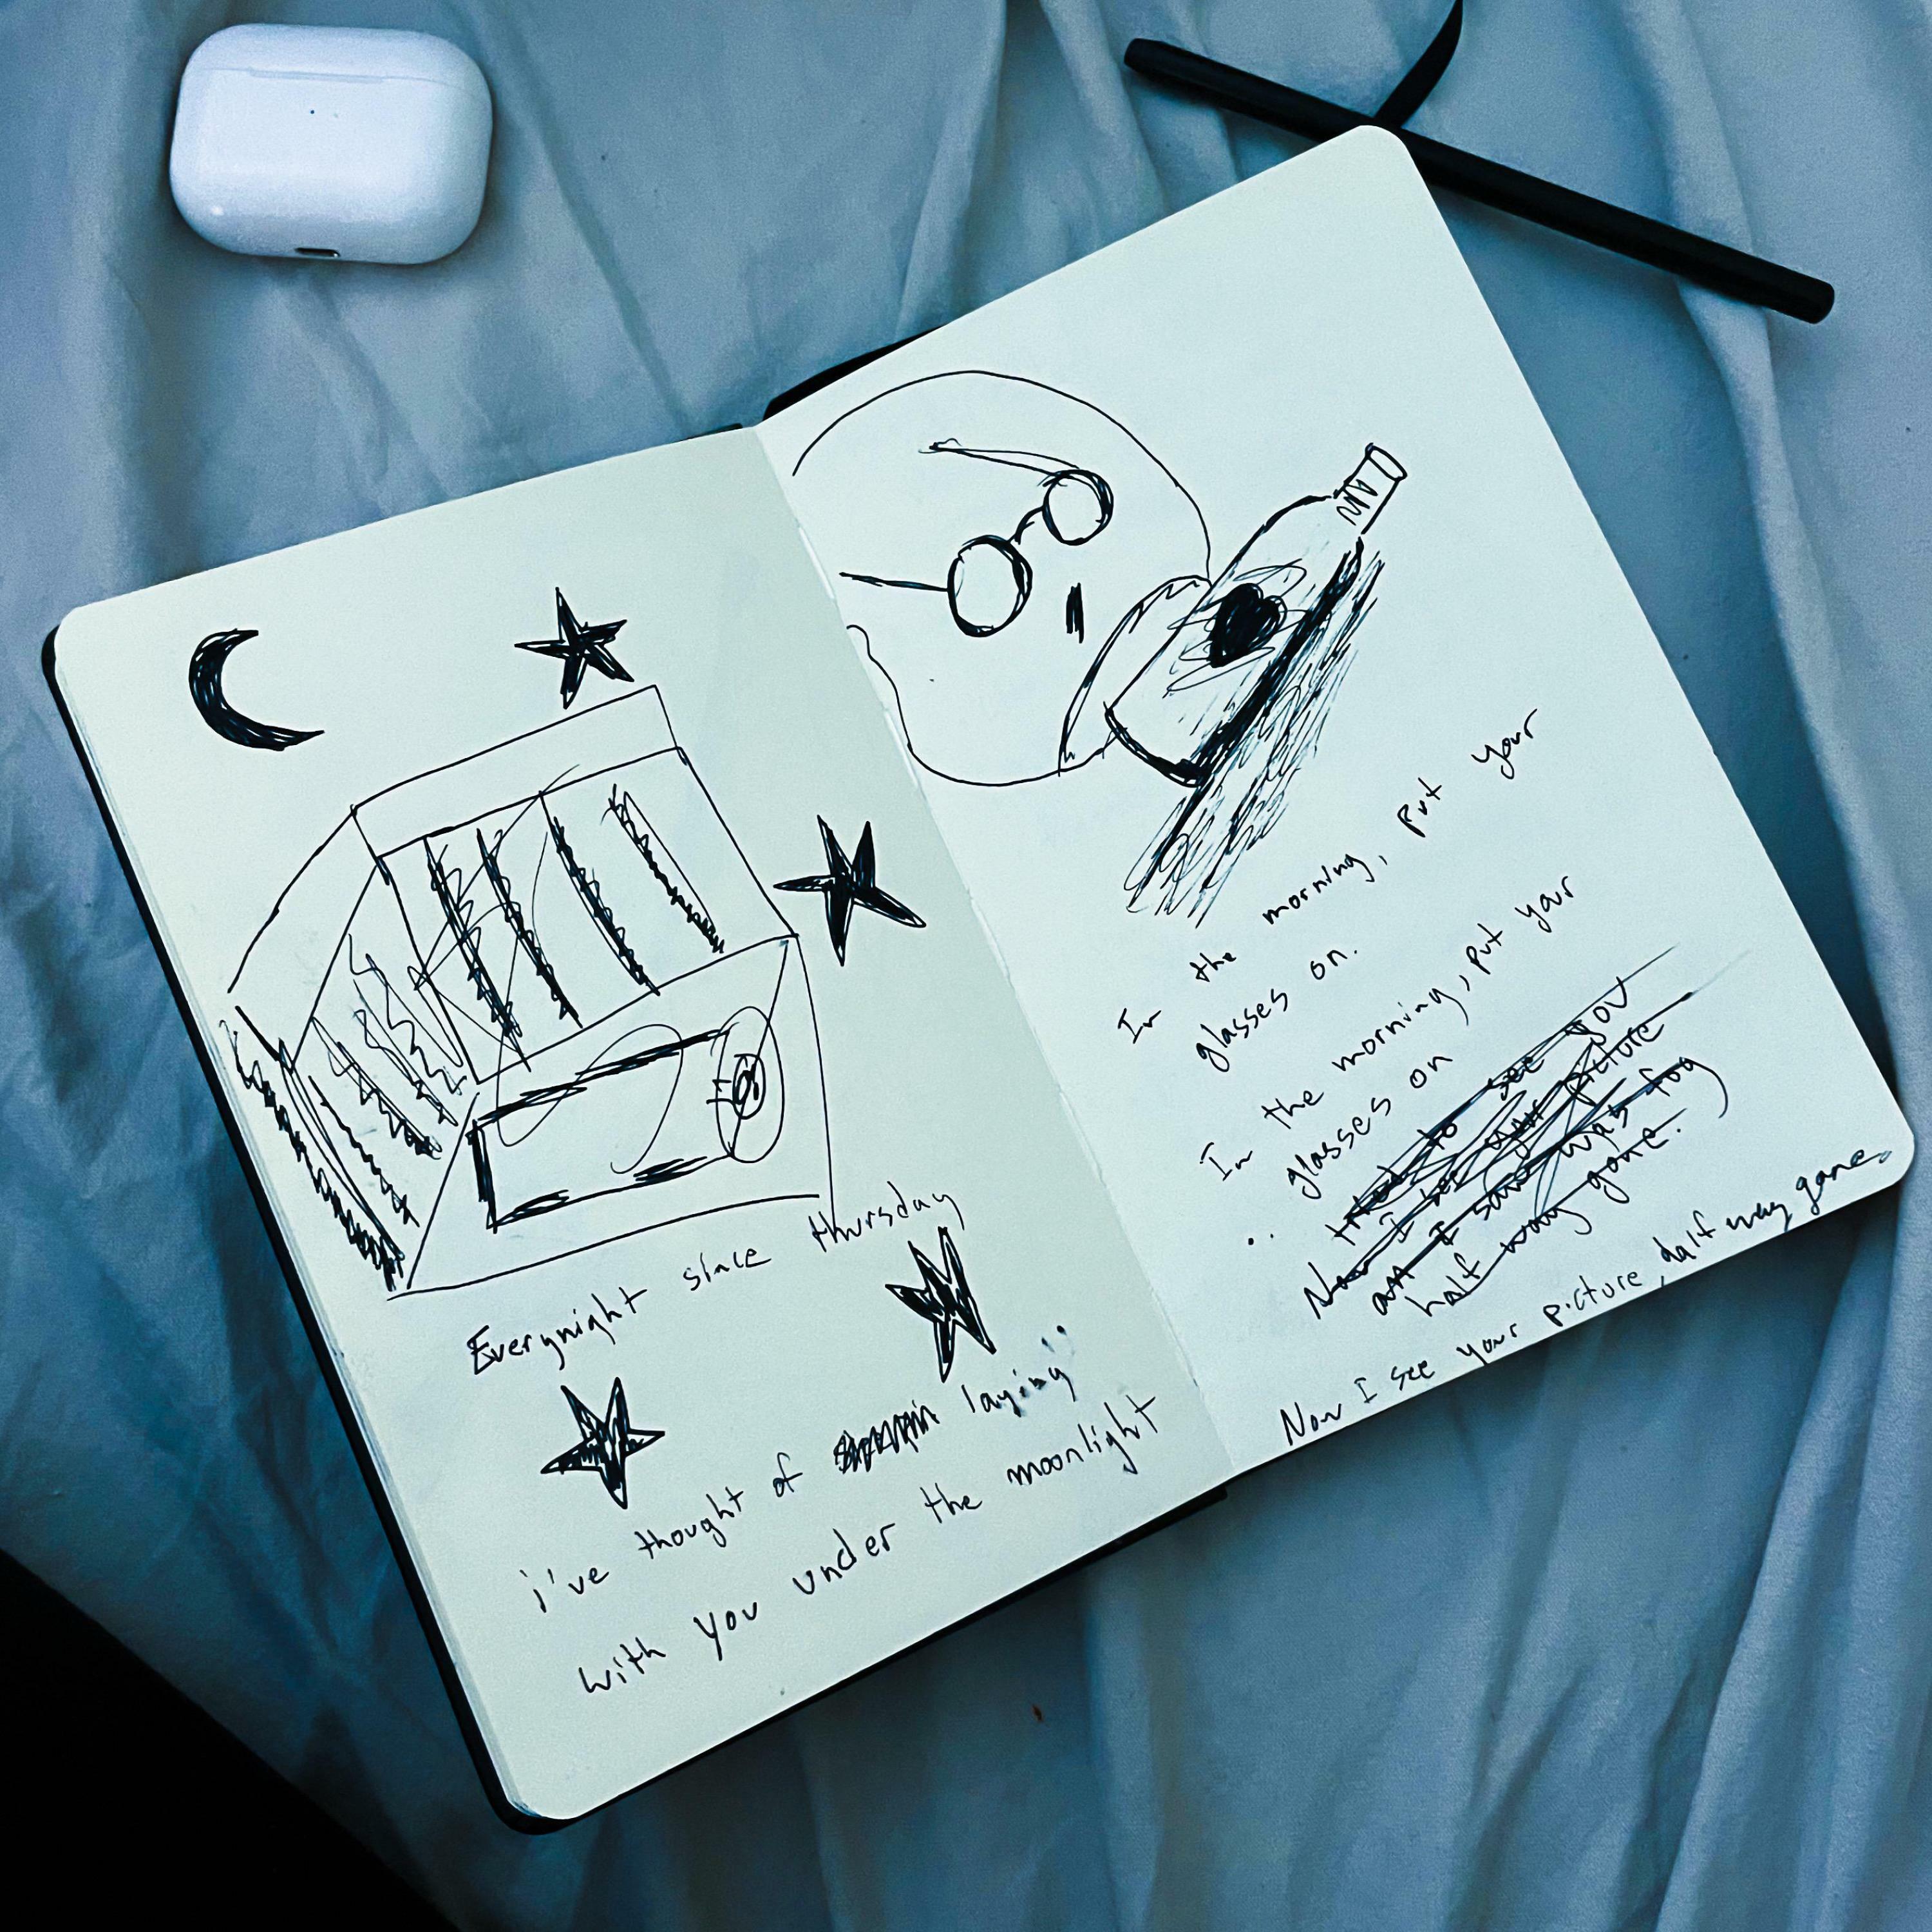 Everynight since thursday
i've thought of laying
with you under the moonlight
In the morning, put your
glasses on.
In the morning, put your
glasses on
tried to see you
Now I see your picture
all I saw was fog
half way gone.
Now I see your picture, half way gone.